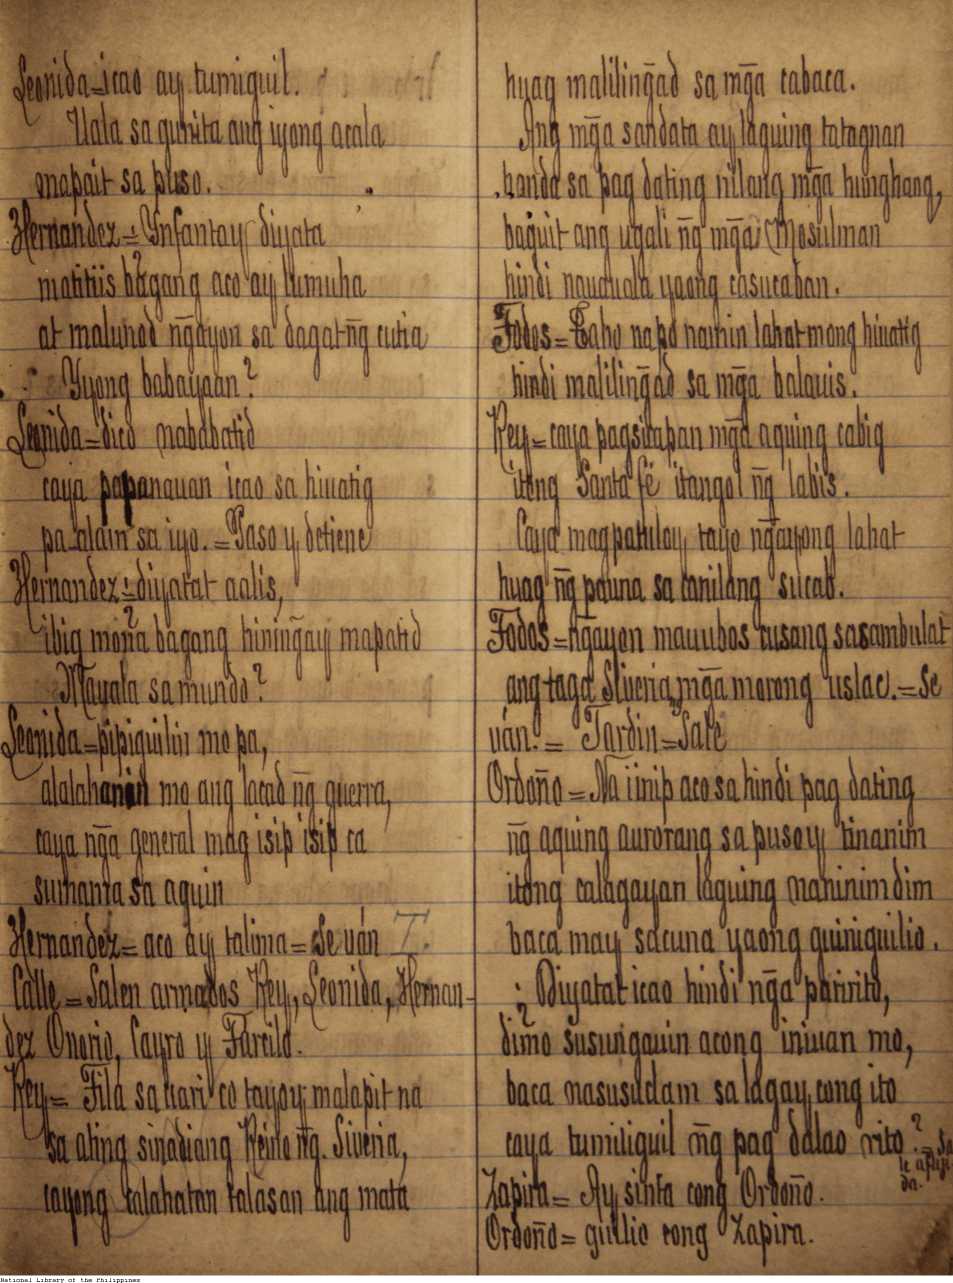 Leonida=icao ay tumiguil.
Uala sa gunita ang iyong acala
mapait sa puso.
Hernandez=Ynfantay diyata
matitiis bagang aco ay lumuha
at malunod ng̃ayon sa dagat ng̃ cutia
Yyong babayaan?
Leonida=dico nababatid
caya papanauan icao sa hiuatig
pa alam sa iyo.=Paso y detiene
Hernandez=diyatat aalis,
ibig mona bagang hining̃ay mapatid
Mayala sa mundo?
Leonida=pipiguilin mo pa,
alalahanin mo ang lacad ng̃ guerra,
caya ng̃a general mag isip isip ca
sumama sa aquin
Hernandez=aco ay talima=Se uán T.
Calle=Salen armados Rey, Leonida, Hernan-
dez Onorio, Cayro y Farcilo.
Rey=Fila sa hari co tayoy malapit na
sa ating sinadiang Reino ng̃. Siveria,
cayong calahatan talasan ang mata
huag maliling̃ad sa mg̃a cabaca.
Ang mg̃a sandata ay laguing tatagnan
handa sa pag dating nilang mg̃a hunghang,
baquit ang ugali ng̃ mg̃a Mosulman
hindi nauuuala yaong casucaban.
Todos=Taho na po namin lahat mong hiuatig
hindi maliling̃ad sa mg̃a balauis.
Rey=caya pagsicapan mg̃a aquing cabig
itong Santa fé itangol ng̃ labis.
Caya magpatuloy tayo ng̃ayong lahat
huag ng̃ pauna sa canilang sucab.
Todos=ng̃ayon mauubos cusang sasambulat
ang taga Siveria, mg̃a morong uslac.=Se
uán.= Jardin=Sale
Ordoño=Na iinip aco sa hindi pag dating
ng̃ aquing aurorang sa pusoy tinanim
itong calagayan laguing naninimdim
baca may sacuna yaong guiniguilio.
Diyatat icao hindi ng̃a paririto,
dimo susung̃auin acong iniuan mo,
baca nasusuclam sa lagay cong ito
caya tumitiguil ng̃ pag dalao rito?=Sa
le apiji
da.
Zapira= Ay sinta cong Ordoño.
Ordoño= guilio cong Zapira.
National Library of the Philippines